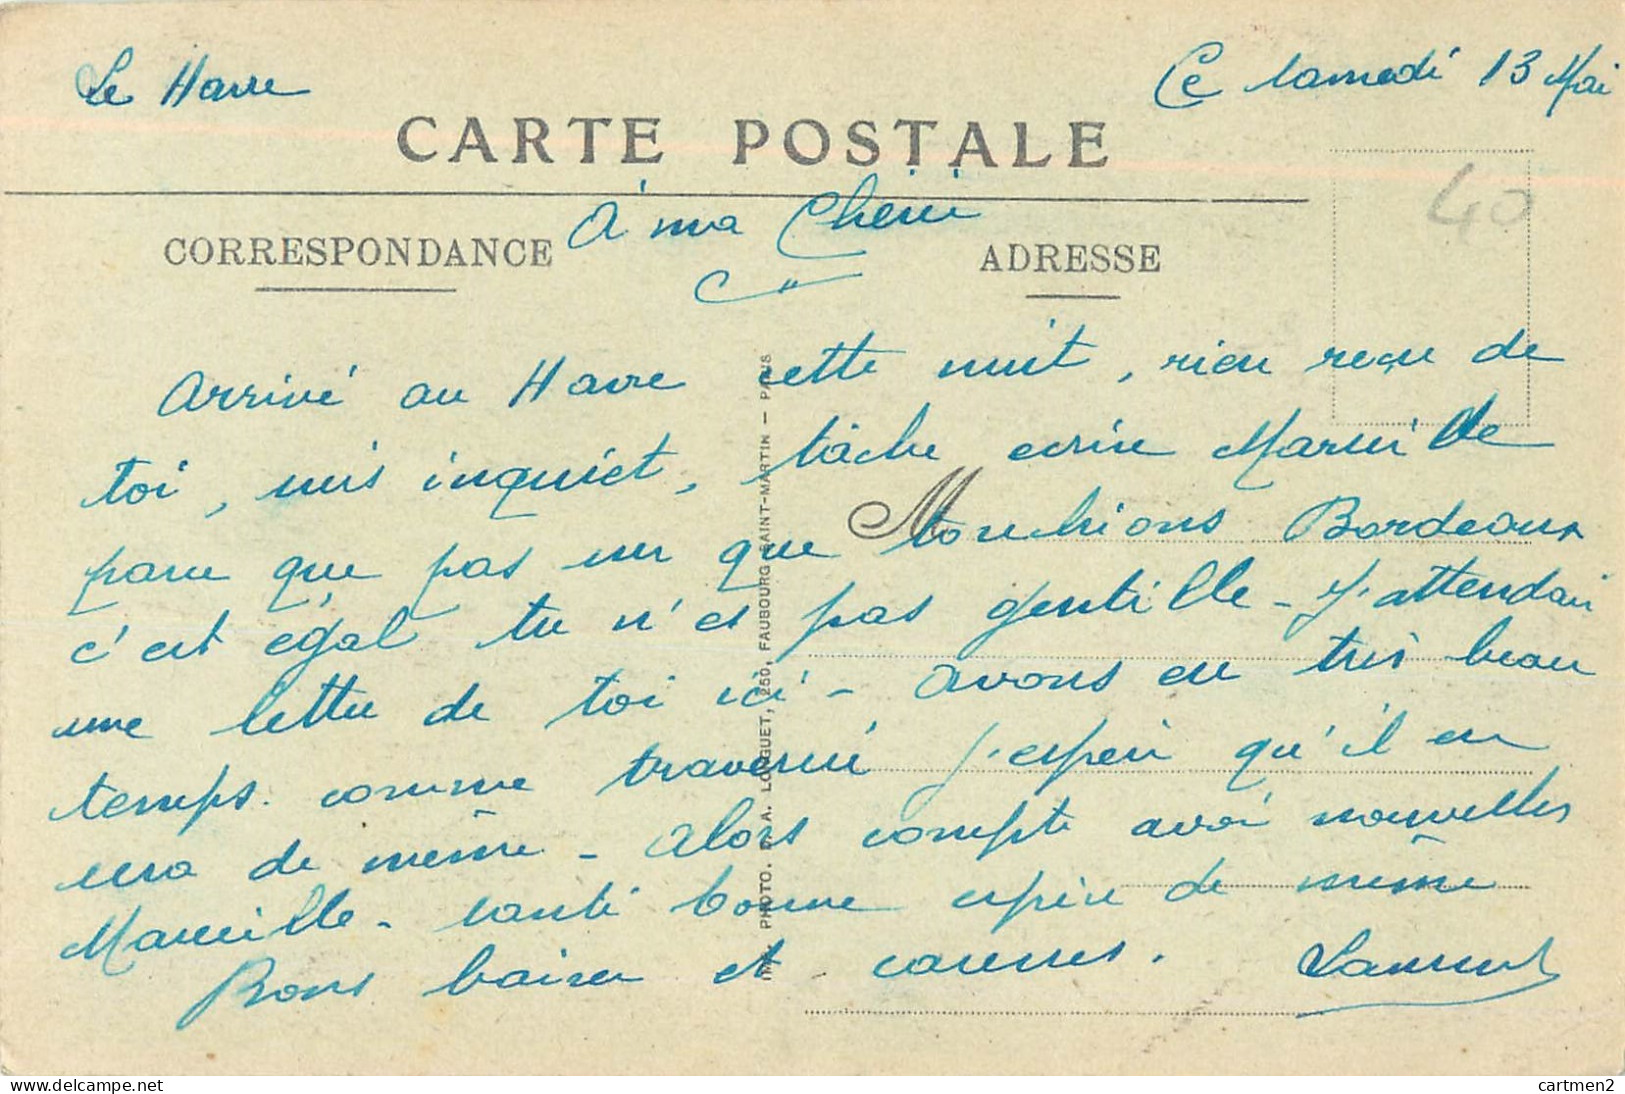 Le Havre
Ce samedi 13 Mai
CARTE POSTALE
à ma Cherie
CORRESPONDANCE
ADRESSE
40
Arrivé au Havre cette nuit, rien reçu de
toi, suis inquiet, tâche ecrire Marseille
parce que pas sur que touchions Bordeaux
c'est égal tu n'es pas gentille - J'attendais
une lettre de toi ici - avons eu très beau
temps comme traversée j'espère qu'il en
sera de même - Alors compte avoir nouvelles
Marseille - santé bonne espère de même
Bons baisers et caresses.
Laurent
M
IMP. PHOTO. D. A. LONGUET, 250, FAUBOURG SAINT-MARTIN — PARIS
delcampe.net
cartmen2